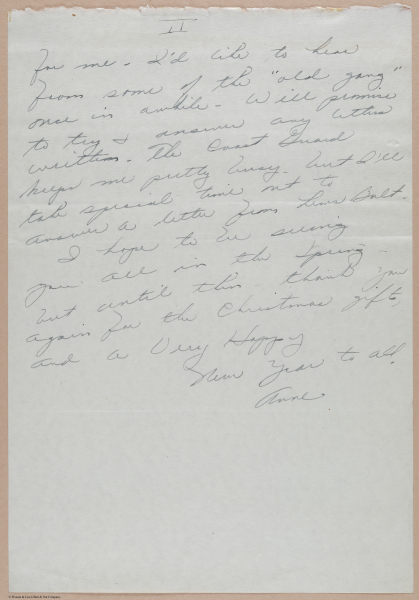 II
for me - I'd like to hear
from some of the "old gang"
once in awhile - Will promise
to try & answer any letters
written. The Coast Guard
keeps me pretty busy - but I'll
take special time out to
answer a letter from Bolt.
I hope to be seeing
you all in the Spring -
but until then - thank you
again for the Christmas gift,
and a Very Happy
New Year to all.
Anne.